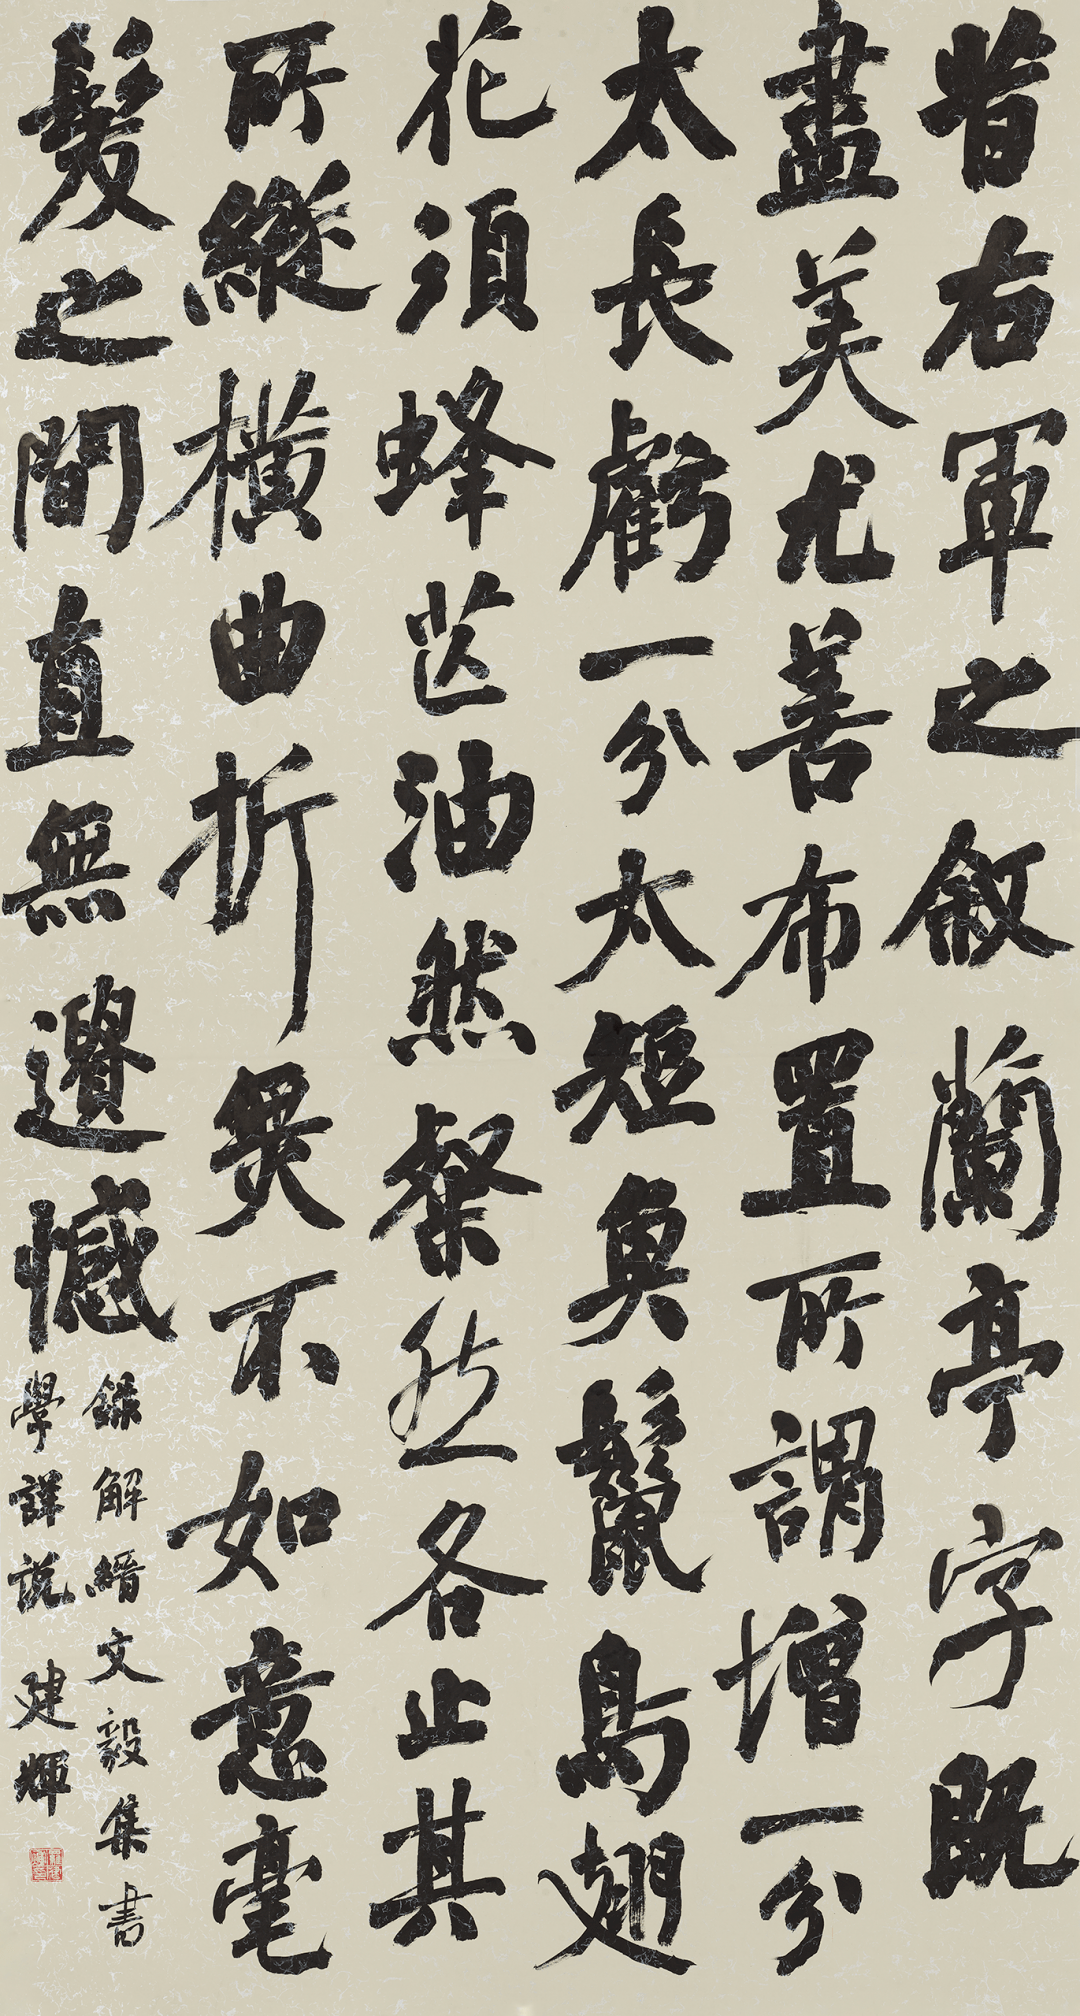 昔右軍之敘蘭亭字既
盡美尤善布置所謂增一分
太長虧一分太短魚鬛鳥翅
花須蜂芒油然粲然各止其
所縱橫曲折無不如意毫
髮之間直無遺憾
錄解縉文毅集書
學詳說 建輝